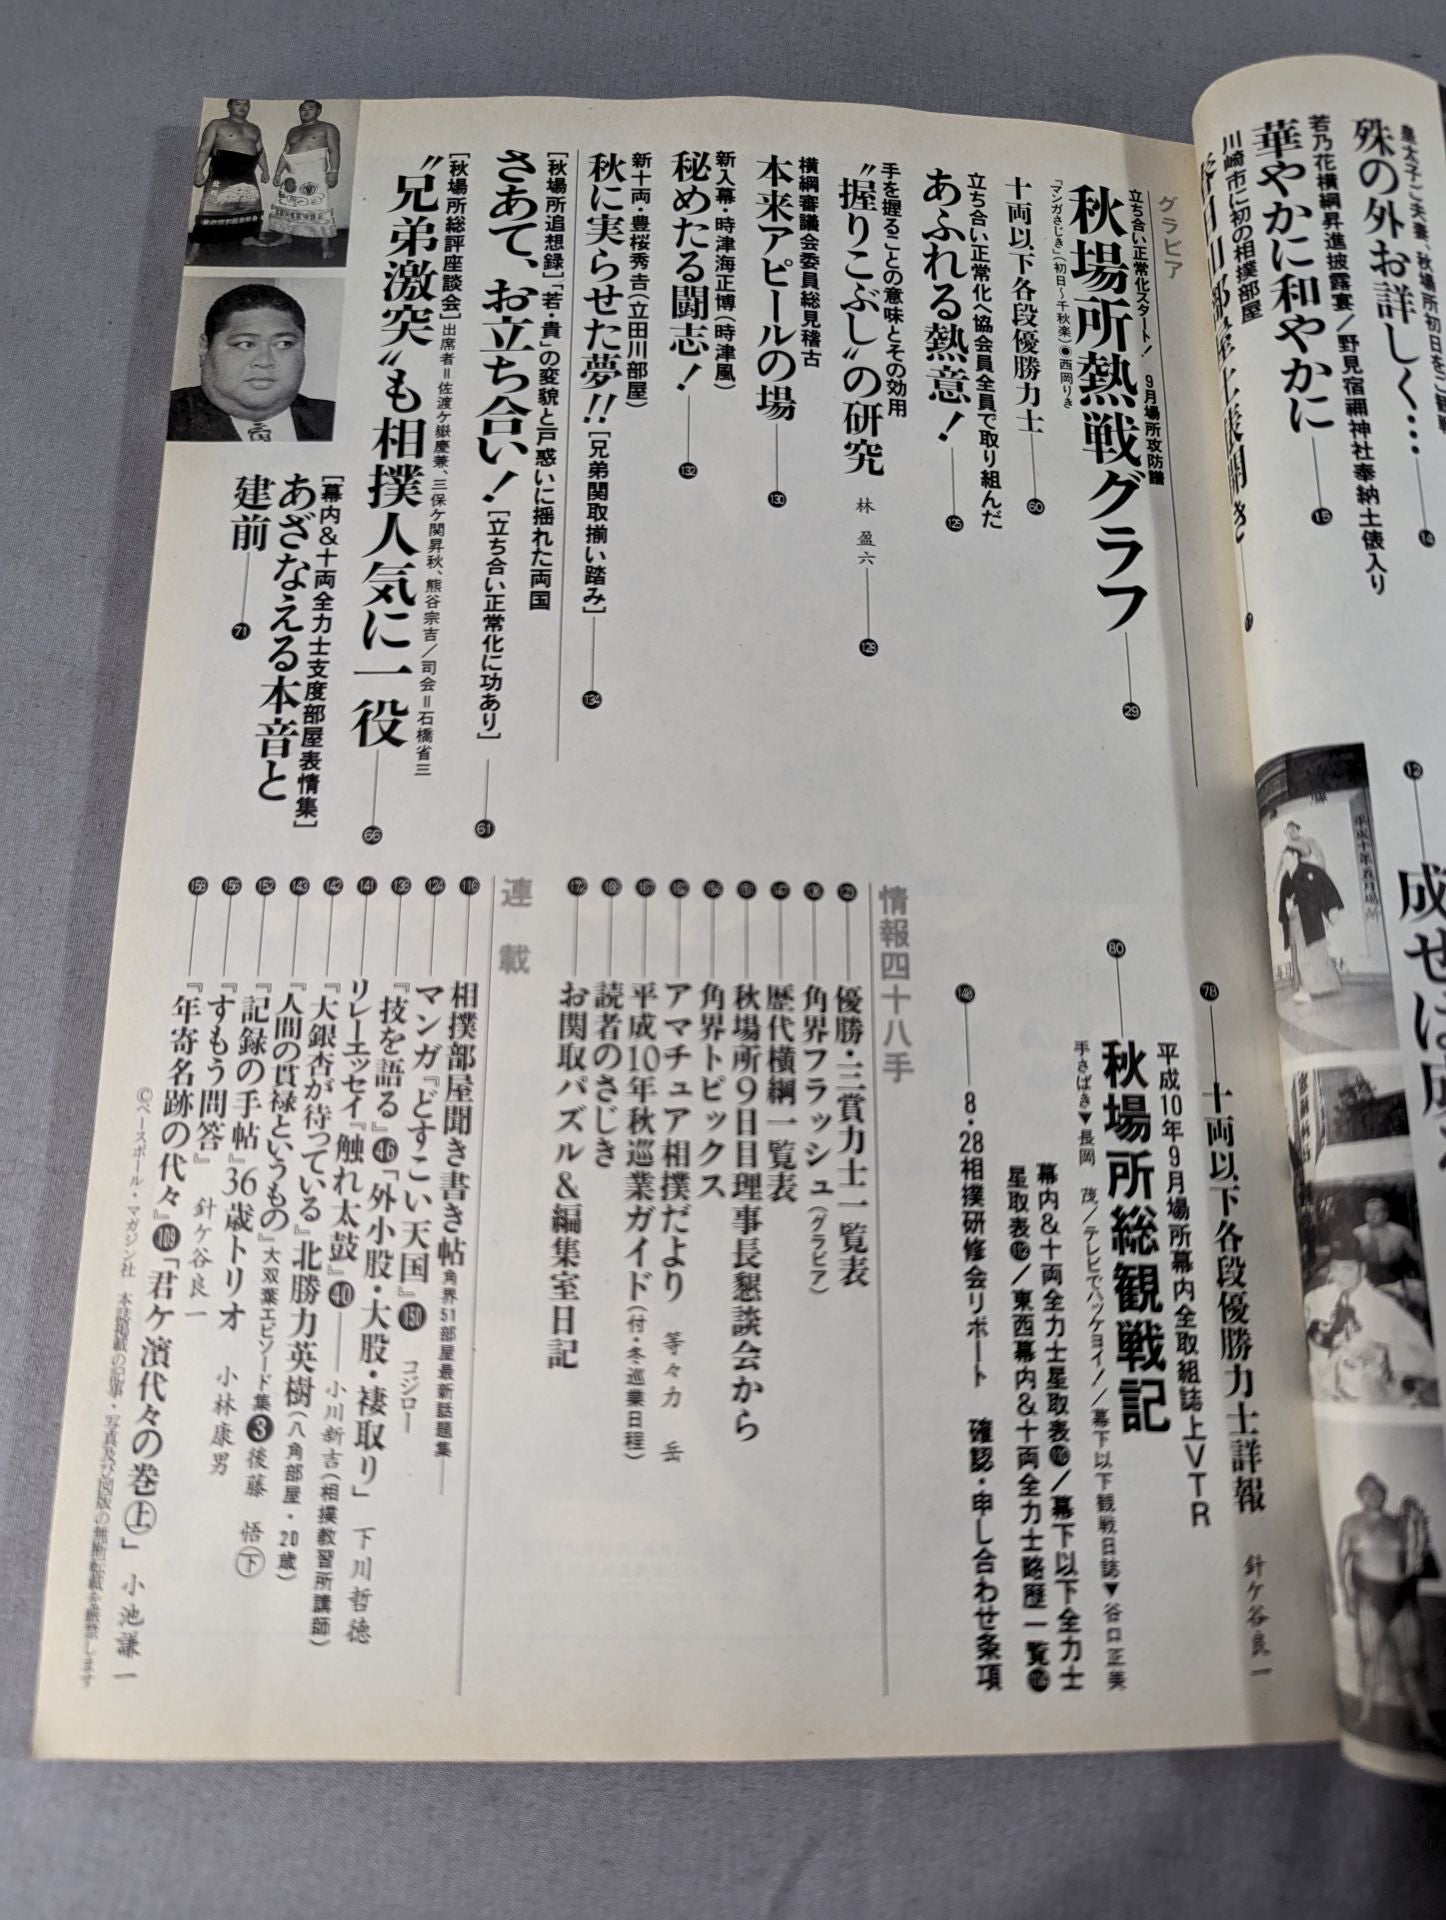 殊の外お詳しく…
14
若乃花横綱昇進披露宴/野見宿禰神社奉納土俵入り
華やかに和やかに
15
川崎市に初の相撲部屋
12
グラビア
立ち合い正常化スタート! 9月場所攻防譜
秋場所熱戦グラフ
29
『マンガさじき』(初日〜千秋楽)●西岡りき
十両以下各段優勝力士
60
立ち合い正常化へ協会員全員で取り組んだ
あふれる熱意!
125
手を握ることの意味とその効用
“握りこぶし”の研究
林 盈六
128
横綱審議会委員総見稽古
本来アピールの場
130
新入幕・時津海正博(時津風)
秘めたる闘志!
132
新十両・豊桜秀吉(立田川部屋)
秋に実らせた夢!![兄弟関取揃い踏み]
134
[秋場所追想録]「若・貴」の変貌と戸惑いに揺れた両国
さあて、お立ち合い![立ち合い正常化に功あり]
61
[秋場所総評座談会]出席者=佐渡ケ嶽慶兼、三保ケ関昇秋、熊谷宗吉/司会=石橋省三
“兄弟激突”も相撲人気に一役
66
[幕内&十両全力士支度部屋表情集]
あざなえる本音と
建前
71
78
十両以下各段優勝力士詳報 針ケ谷良一
平成10年9月場所幕内全取組誌上VTR
80
秋場所総観戦記
手さばき▼長岡 茂/テレビでハッケヨイ!/幕下以下観戦日誌▼谷口正美
幕内&十両全力士星取表/幕下以下全力士
星取表/東西幕内&十両全力士略歴一覧
148
8・28相撲研修会リポート 確認・申し合わせ条項
情報四十八手
優勝・三賞力士一覧表
角界フラッシュ(グラビア)
歴代横綱一覧表
秋場所9日目理事長懇談会から
角界トピックス
アマチュア相撲だより 等々力 岳
平成10年秋巡業ガイド(付・冬巡業日程)
読者のさじき
お関取パズル&編集室日記
連載
116
相撲部屋聞き書き帖 角界51部屋最新話題集
124
マンガ『どすこい天国』150 コジロー
138
『技を語る』46「外小股・大股・褄取り」 下川哲徳
141
リレーエッセイ『触れ太鼓』40 小川新吉(相撲教習所講師)
142
『大銀杏が待っている』北勝力英樹(八角部屋・20歳)
143
『人間の貫禄というもの』大双葉エピソード集3 後藤 悟 下
152
『記録の手帖』36歳トリオ 小林康男
156
『すもう問答』 針ケ谷良一
158
『年寄名跡の代々』109「君ケ濱代々の巻上」 小池謙一
©ベースボール・マガジン社 本誌掲載の記事・写真及び図版の無断転載を厳禁します